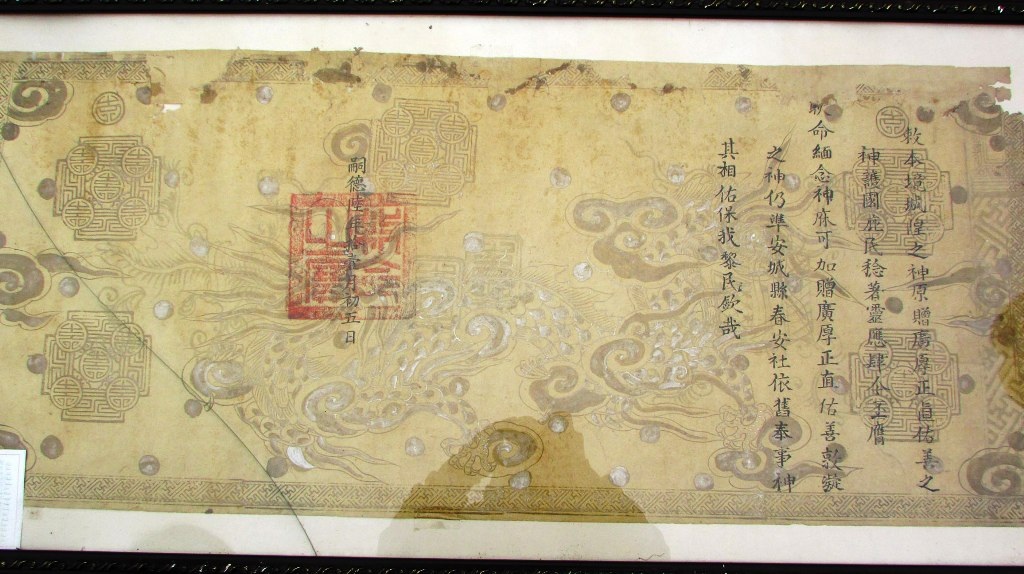 敕本境城隍之神原贈廣厚正直佑善之
神護國庇民稔著靈應肆今丕膺
耿命緬念神庥可加贈廣厚正直佑善敦凝
之神仍準安城縣春安社依舊奉事神
其相佑保我黎民欽哉
嗣德陸年拾壹月初五日
敕命之寶